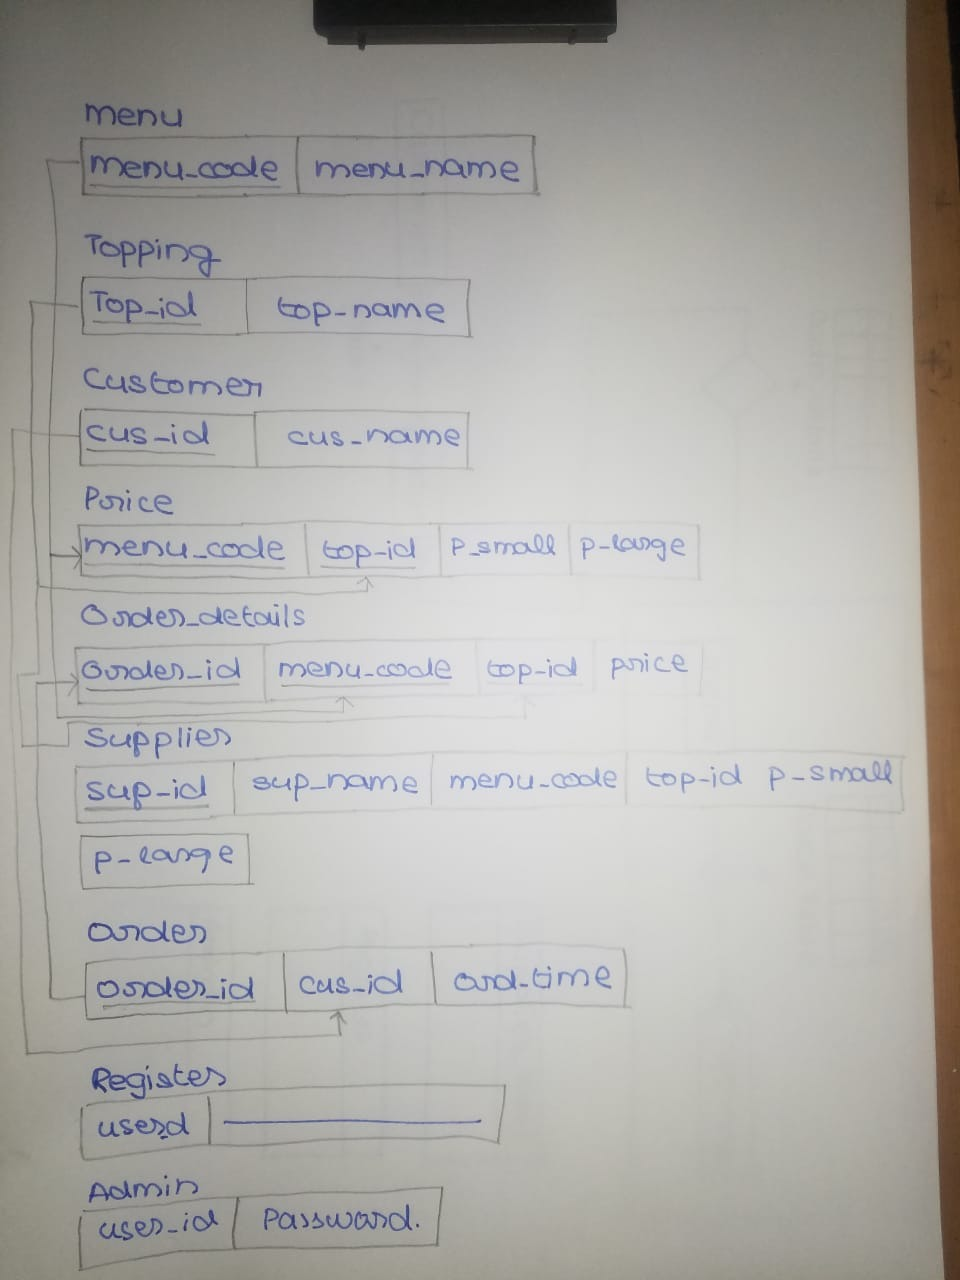 menu
menu_code menu_name
Topping
Top_id top_name
Customer
cus_id cus_name
Price
menu_code top_id p_small p_large
Order_details
Order_id menu_code top_id price
Supplier
sup_id sup_name menu_code top_id p_small
p_large
Order
Order_id cus_id ord_time
Register
userid
Admin
user_id Password.